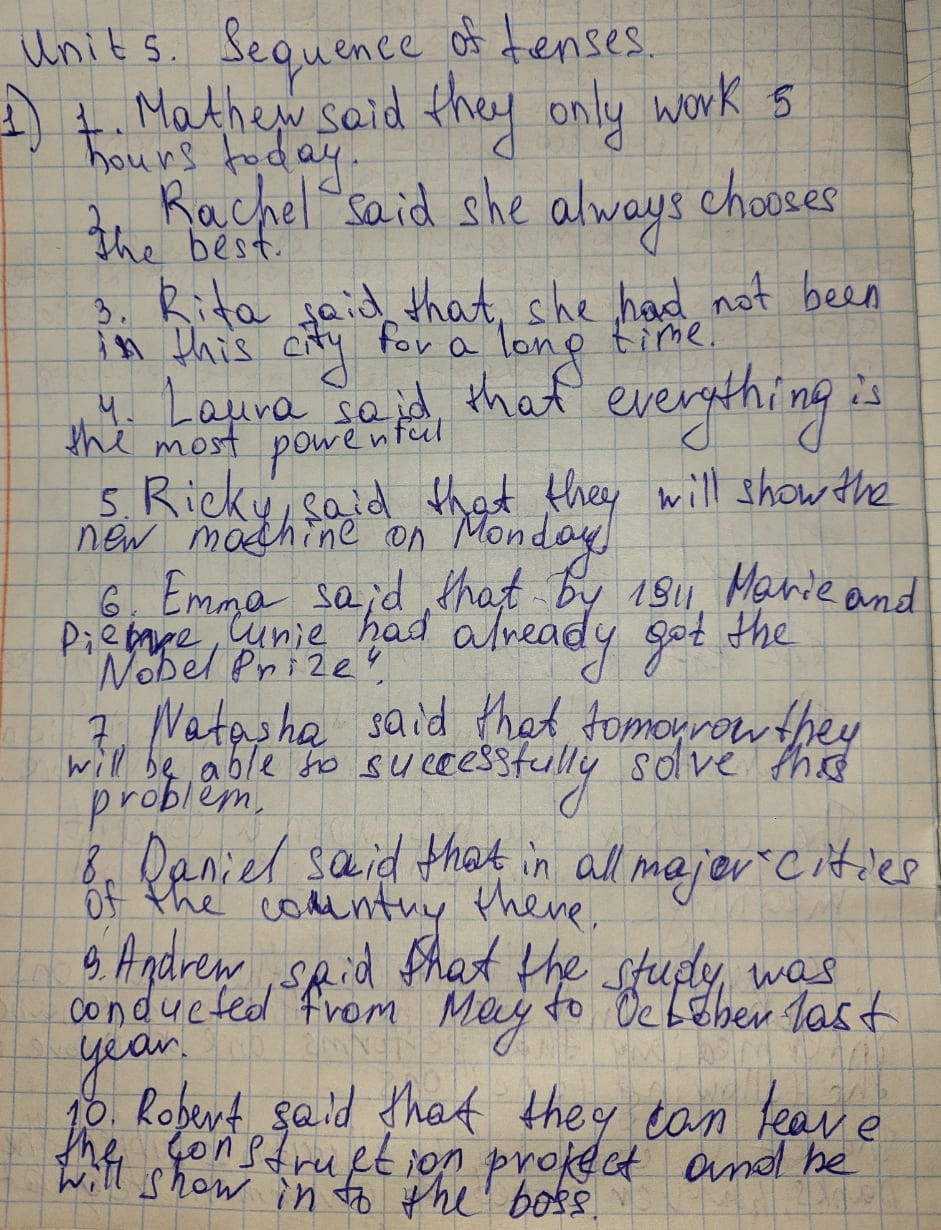 Unit 5. Sequence of tenses.
1) 1. Mathew said they only work 5
hours today.
2. Rachel said she always chooses
the best.
3. Rita said that she had not been
in this city for a long time.
4. Laura said that everything is
the most powerful
5. Ricky said that they will show the
new machine on Monday
6. Emma said that by 1911 Marie and
Pierre Curie had already got the
Nobel Prize".
7. Natasha said that tomorrow they
will be able to successfully solve this
problem.
8. Daniel said that in all major cities
of the country there.
9. Andrew said that the study was
conducted from May to October last
year.
10. Robert said that they can leave
the construction project and he
will show in to the boss.